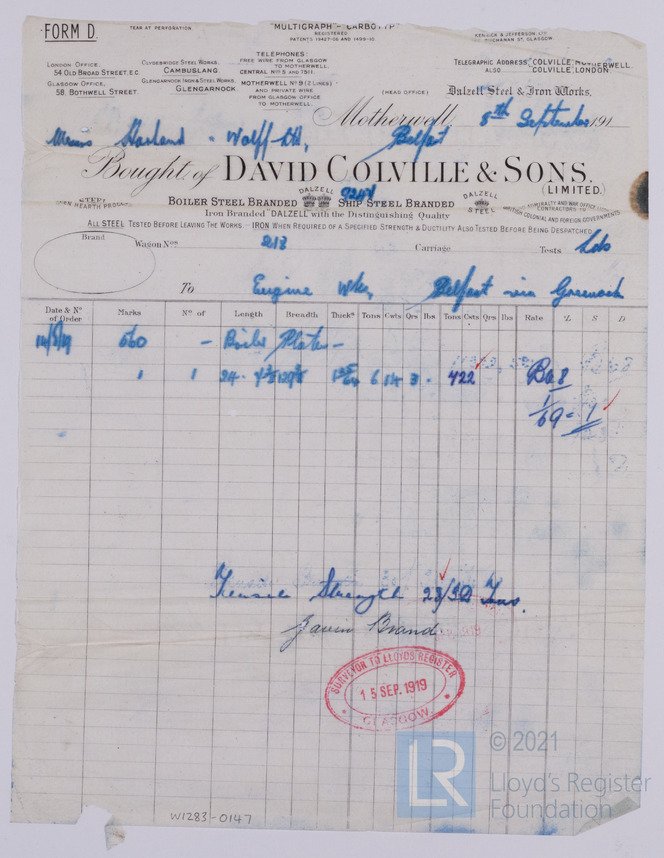 FORM D.
TEAR AT PERFORATION.
"MULTIGRAPH - CARBO
REGISTERED
PATENTS 19427-06 AND 1499-10.
& JEFFERSON, LTD
BUCHANAN ST, GLASGOW
LONDON OFFICE,
54 OLD BROAD STREET, E.C.
GLASGOW OFFICE,
58, BOTHWELL STREET.
CLYDEBRIDGE STEEL WORKS,
CAMBUSLANG.
GLENGARNOCK IRON & STEEL WORKS,
GLENGARNOCK.
TELEPHONES:
FREE WIRE FROM GLASGOW
TO MOTHERWELL.
CENTRAL Nos 5 AND 7511.
MOTHERWELL No 9 (2 LINES)
AND PRIVATE WIRE
FROM GLASGOW OFFICE
TO MOTHERWELL.
TELEGRAPHIC ADDRESS, COLVILLE, MOTHERWELL
ALSO COLVILLE, LONDON.
(HEAD OFFICE) Dalzell Steel & Iron Works,
Motherwell, 8th September 191
Messrs Harland & Wolff Ltd, Belfast
Bought of DAVID COLVILLE & SONS.
(LIMITED.)
STEEL
OPEN HEARTH PROCESS
BOILER STEEL BRANDED DALZELL SHIP STEEL BRANDED DALZELL STEEL
ADMIRALTY AND WAR OFFICE
CONTRACTORS TO
BRITISH COLONIAL AND FOREIGN GOVERNMENTS
Iron Branded "DALZELL" with the Distinguishing Quality
ALL STEEL TESTED BEFORE LEAVING THE WORKS - IRON WHEN REQUIRED OF A SPECIFIED STRENGTH & DUCTILITY ALSO TESTED BEFORE BEING DESPATCHED
Brand Wagon Nos 213 Carriage Tests Lds
To Engine Wks, Belfast via Greenock
Date & No of Order Marks No of Length Breadth Thickss Tons Cwts Qrs lbs Tons Cwts Qrs lbs Rate £ S D
14/8/19 560 - Boiler Plates -
1 1 24 6 14 3 - 422 B a 8
1/69 = 1
Tensile Strength 28/32 Tons.
Gavin Brand
SURVEYOR TO LLOYDS REGISTER
15 SEP. 1919
GLASGOW
LR
© 2021
Lloyd's Register
Foundation
W1283-0147